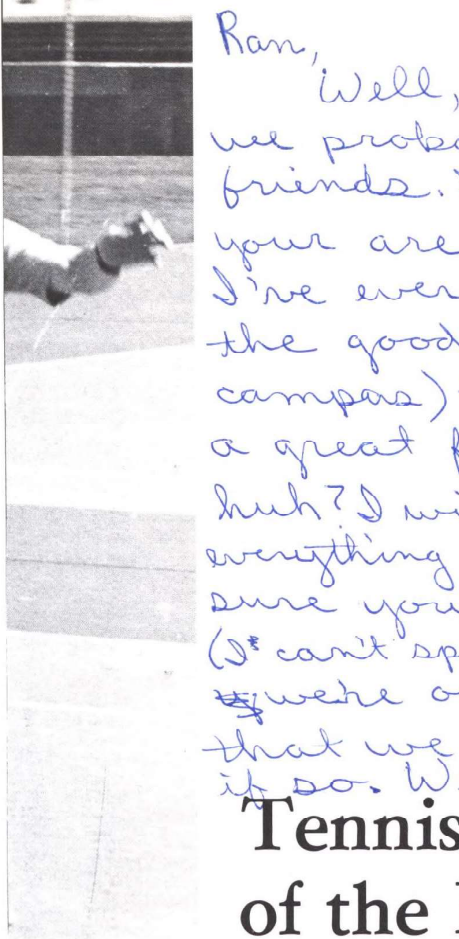 Ran,
Well,
we proba
friends.
your are
I've ever
the good
campas)
a great f
huh? I wi
everything
sure you
(I can't sp
we're o
that we
if so. W
Tennis
of the